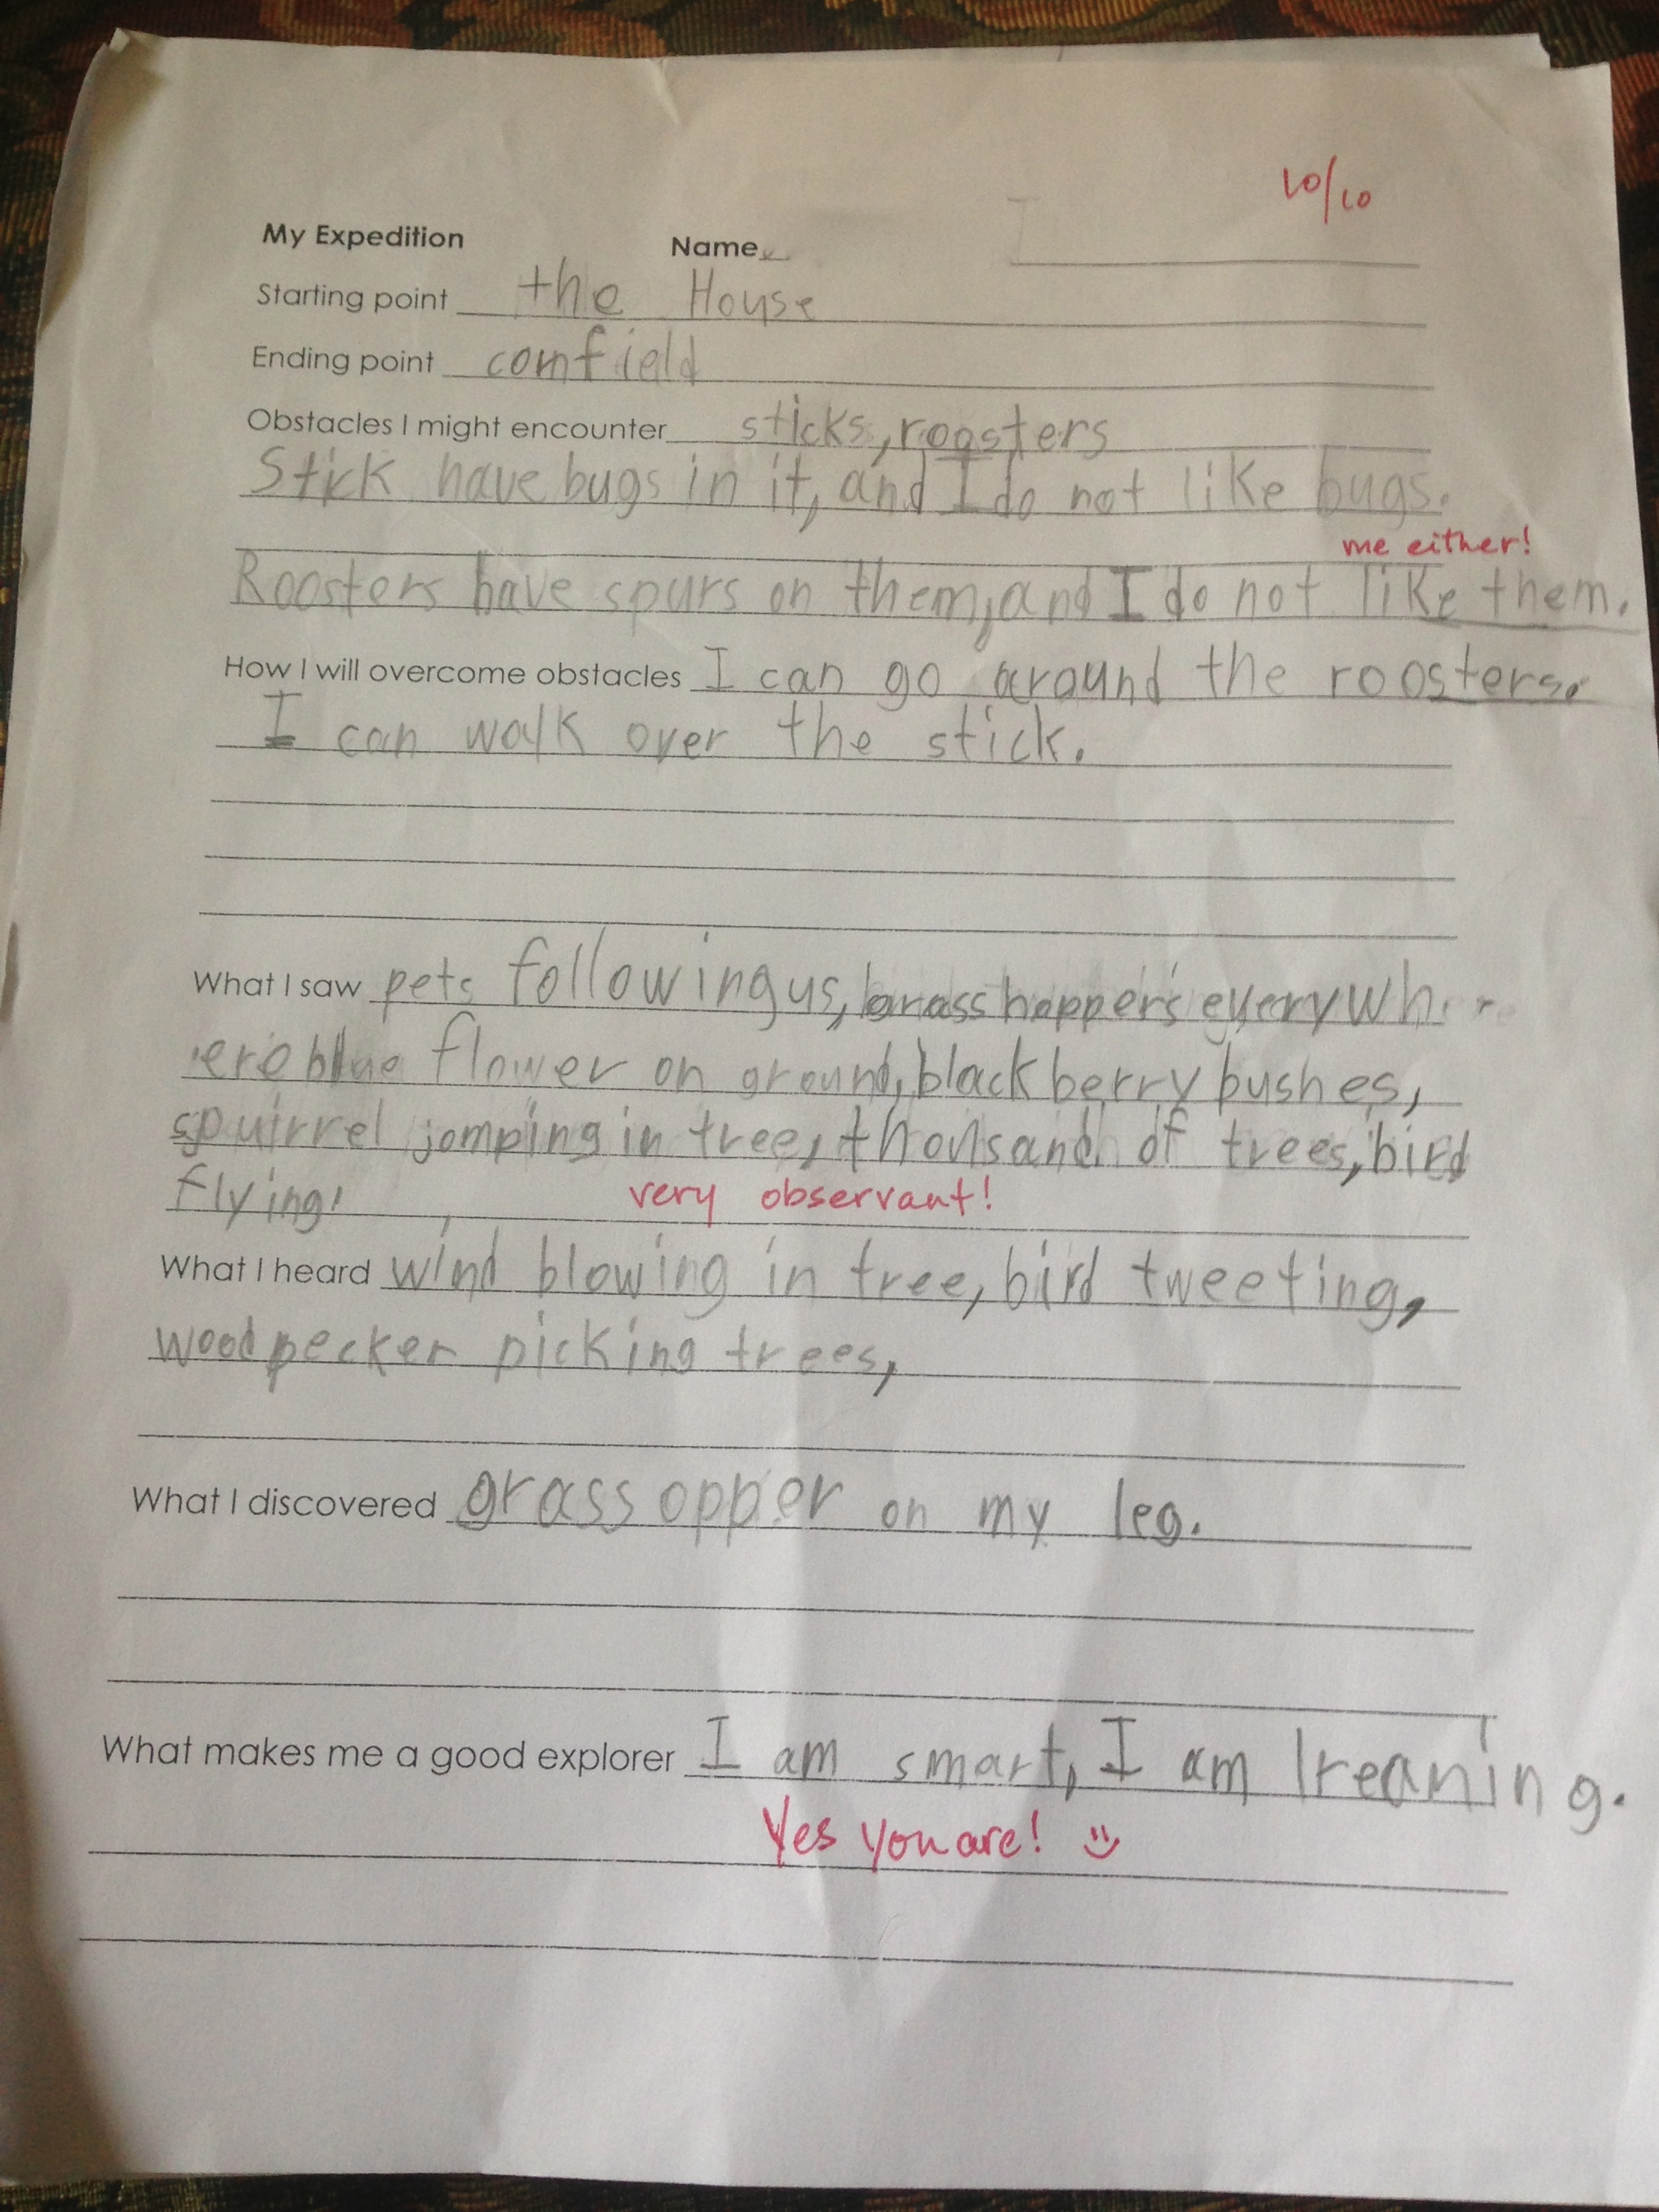 10/10
My Expedition Name
Starting point the House
Ending point cornfield
Obstacles I might encounter sticks, roosters
Stick have bugs in it, and I do not like bugs.
me either!
Roosters have spurs on them, and I do not like them.
How I will overcome obstacles I can go around the roosters.
I can walk over the stick.
What I saw pets following us, grasshopper's everywh
ere blue flower on ground, black berry bushes,
squirrel jomping in tree, thousand of trees, bird
flying,
very observant!
What I heard wind blowing in tree, bird tweeting,
wood pecker picking trees,
What I discovered grass opper on my leg.
What makes me a good explorer I am smart, I am lreaning.
Yes you are!